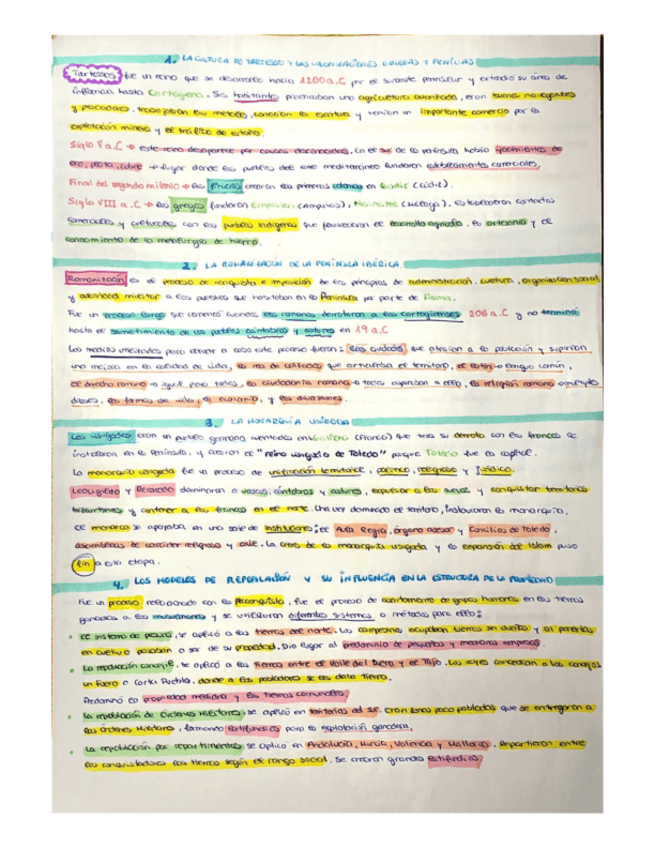 1. LA CULTURA DE TARTESSOS Y LAS COLONIZACIONES GRIEGAS Y FENICIAS
Tartessos fue un reino que se desarrolló hacia 1200 a.C por el suroeste peninsular y extendió su área de
influencia hasta Cartagena. Sus habitantes practicaban una agricultura avanzada, eran buenos navegantes
y pescadores, trabajaban los metales, conocían la escritura y tenían un importante comercio por la
explotación minera y el tráfico de estaño.
Siglo V a.C → este reino desaparece por causas desconocidas. En el sur de la península había yacimientos de
oro, plata, cobre → lugar donde los pueblos del este mediterráneo fundaron establecimientos comerciales.
Final del segundo milenio → los fenicios crearon las primeras colonias en Gadir (Cádiz).
Siglo VIII a.C → los griegos fundaron Emporion (Ampurias), Mainake (Málaga). Establecieron contactos
comerciales y culturales con los pueblos indígenas que favorecieron el desarrollo agrícola, la artesanía y el
conocimiento de la metalurgia de hierro.
2. LA ROMANIZACIÓN DE LA PENÍNSULA IBÉRICA
Romanización es el proceso de conquista e imposición de los principios de administración, cultura, organización social
y autoridad militar a los pueblos que habitaban en la Península por parte de Roma.
Fue un proceso largo que comenzó cuando los romanos derrotaron a los cartagineses 206 a.C y no terminó
hasta el sometimiento de los pueblos cántabros y astures en 19 a.C
Los medios utilizados para llevar a cabo este proceso fueron: las ciudades que atraían a la población y suponían
una mejora en la calidad de vida, la red de calzadas que articulaba el territorio, el latín → lengua común,
el derecho romano → igual para todos, la ciudadanía romana → todos aspiraban a ella, la religión romana → múltiples
dioses, las formas de vida, el urbanismo, y las diversiones.
3. LA MONARQUÍA VISIGODA
Los visigodos eran un pueblo germano asentado en (Francia) que tras su derrota con los francos se
instalaron en la Península, y crearon el "reino visigodo de Toledo" porque Toledo fue la capital.
La monarquía visigoda fue un proceso de unificación territorial, político, religioso y jurídico.
Leovigildo y Recaredo dominaron a vascos, cántabros y astures, expulsar a los suevos y conquistar territorios
bizantinos y contener a los francos en el norte. Una vez dominado el territorio, instauraron la monarquía.
El monarca se apoyaba en una serie de instituciones; el Aula Regia, órgano asesor y Concilios de Toledo,
asambleas de carácter religioso y civil. La crisis de la monarquía visigoda y la expansión del Islam puso
fin a esta etapa.
4. LOS MODELOS DE REPOBLACIÓN Y SU INFLUENCIA EN LA ESTRUCTURA DE LA PROPIEDAD
Fue un proceso relacionado con la Reconquista. Fue el proceso de asentamiento de grupos humanos en las tierras
ganadas a los musulmanes y se utilizaron diferentes sistemas o métodos para ello:
• El sistema de presura, se aplicó a las tierras del norte. Los campesinos ocupaban tierras sin dueño y al ponerlas
en cultivo pasaban a ser de su propiedad. Dio lugar al predominio de pequeñas y medianas empresas.
• La repoblación concejil, se aplicó a las tierras entre el Valle del Duero y el Tajo. Los reyes concedían a los concejos
un Fuero o Carta Puebla, donde a los pobladores se les daba tierra.
Predominó la propiedad mediana y las tierras comunales.
• La repoblación de Órdenes Militares; se aplicó en territorios del sur. Eran zonas poco pobladas que se entregaron a
las Órdenes Militares, formando latifundios para la explotación ganadera.
• La repoblación por repartimientos, se aplicó en Andalucía, Murcia, Valencia y Mallorca. Repartieron entre
los conquistadores las tierras según el rango social. Se crearon grandes latifundios.